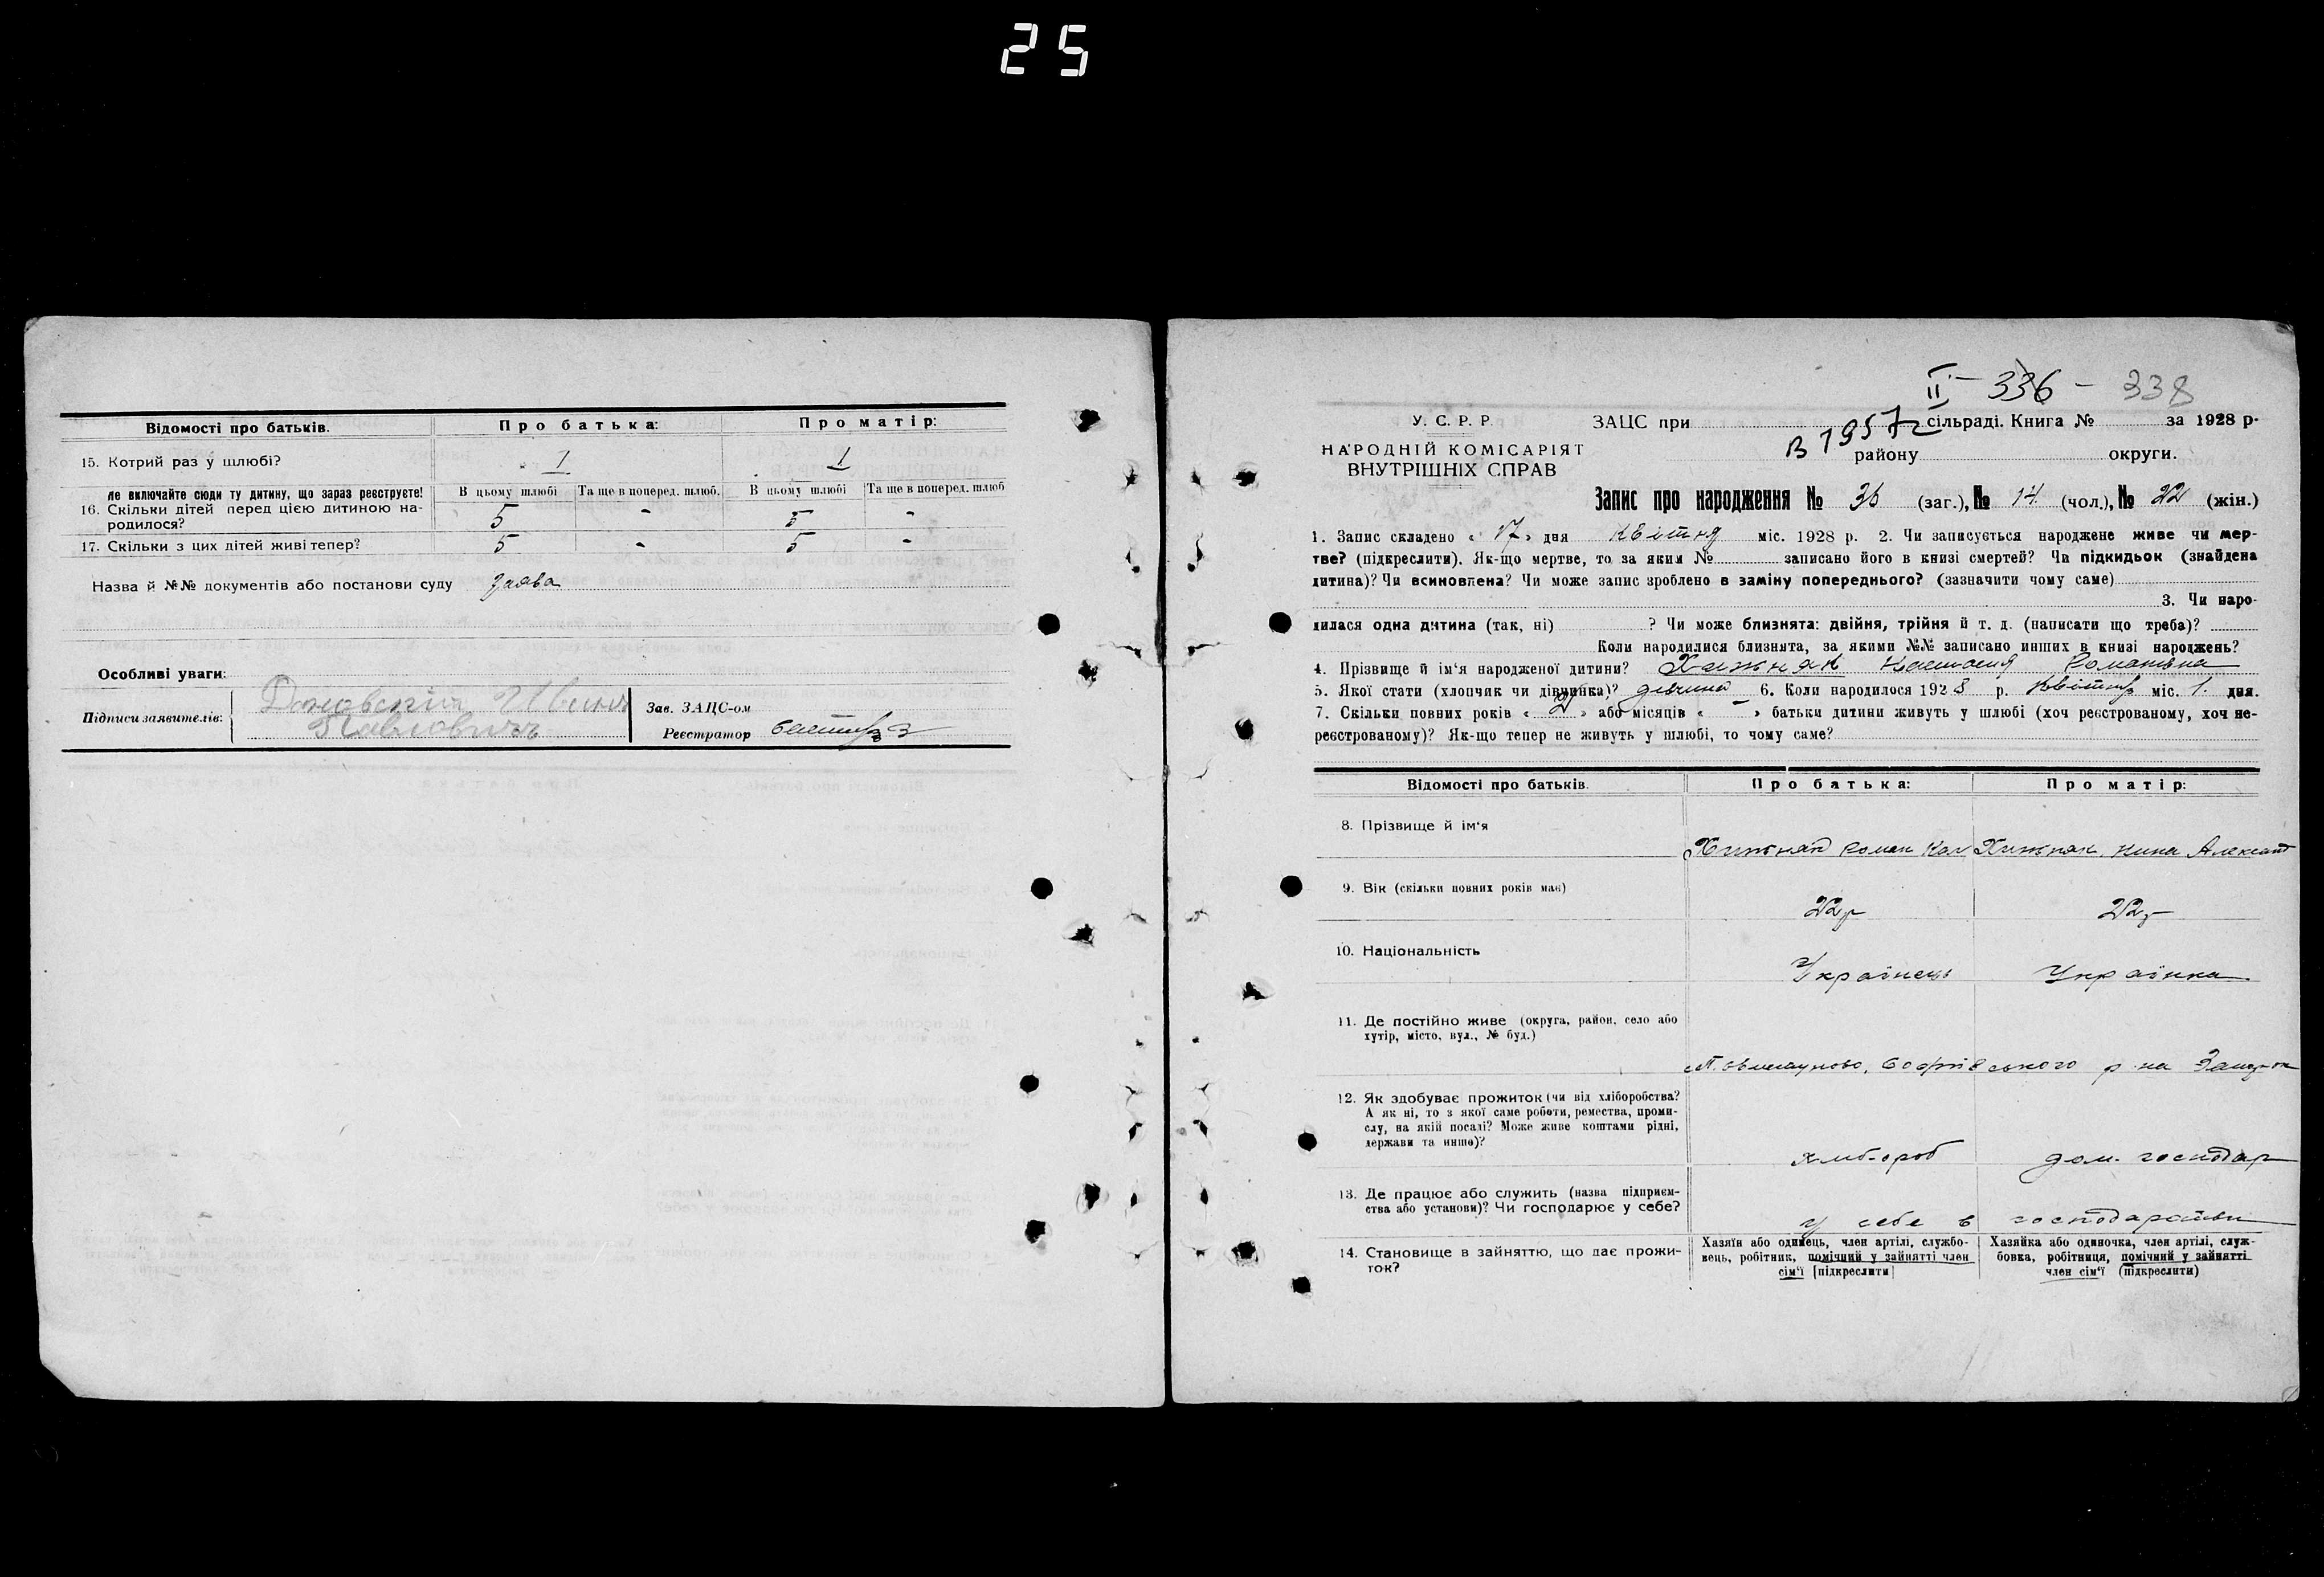 25
Відомості про батьків. Про батька: Про матір:
15. Котрий раз у шлюбі? 1 1
Не включайте сюди ту дитину, що зараз реєструєте! В цьому шлюбі Та ще в поперед. шлюб. В цьому шлюбі Та ще в поперед. шлюб
16. Скільки дітей перед цією дитиною на-
родилося? 5 - 5 -
17. Скільки з цих дітей живі тепер? 5 - 5 -
Назва й №№ документів або постанови суду заява
Особливі уваги:
Підписи заявителів: Иванъ
Павловичъ
Зав. ЗАЦС-ом
Реєстратор
II - 336 - 338
У. С. Р. Р. ЗАЦС при сільраді. Книга № за 1928 р.
НАРОДНІЙ КОМІСАРІЯТ
ВНУТРІШНІХ СПРАВ
В 1957г
району округи.
Запис про народження № 36 (заг.), № 14 (чол.), № 22 (жін.)
1. Запис складено « 17 » дня Квітня міс. 1928 р. 2. Чи записується народжене живе чи мер-
тве? (підкреслити). Як-що мертве, то за яким № записано його в книзі смертей? Чи підкидьок (знайдена
дитина)? Чи всиновлена? Чи може запис зроблено в заміну попереднього? (зазначити чому саме)
3. Чи наро-
дилася одна дитина (так, ні) ? Чи може близнята: двійня, трійня й т. д. (написати що треба)?
Коли народилися близнята, за якими №№ записано инших в книзі народжень?
4. Прізвище й ім'я народженої дитини? Хижняк Романівна
5. Якої стати (хлопчик чи дівчинка)? дівчина 6. Коли народилося 1928 р. Квітня міс. 1. дня.
7. Скільки повних років « 2 » або місяців « - » батьки дитини живуть у шлюбі (хоч реєстрованому, хоч не-
реєстрованому)? Як-що тепер не живуть у шлюбі, то чому саме?
Відомості про батьків. Про батька: Про матір:
8. Прізвище й ім'я
Хижняк Роман Хижняк Александ
9. Вік (скільки повних років має)
22р 22р
10. Національність
Українець Українка
11. Де постійно живе (округа, район, село або
хутір, місто, вул., № буд.)
р-на
12. Як здобуває прожиток (чи від хліборобства?
А як ні, то з якої саме роботи, ремества, проми-
слу, на якій посаді? Може живе коштами рідні,
держави та инше)?
хлібороб дом. господар
13. Де працює або служить (назва підприєм-
ства або установи)? Чи господарює у себе?
у себе в господарстві
14. Становище в зайняттю, що дає прожи-
ток?
Хазяїн або одинець, член артілі, службо-
вець, робітник, помічний у зайнятті член
сім'ї [підкреслити]
Хазяйка або одиночка, член артілі, служ-
бовка, робітниця, помічний у зайнятті
член сім'ї (підкреслити)